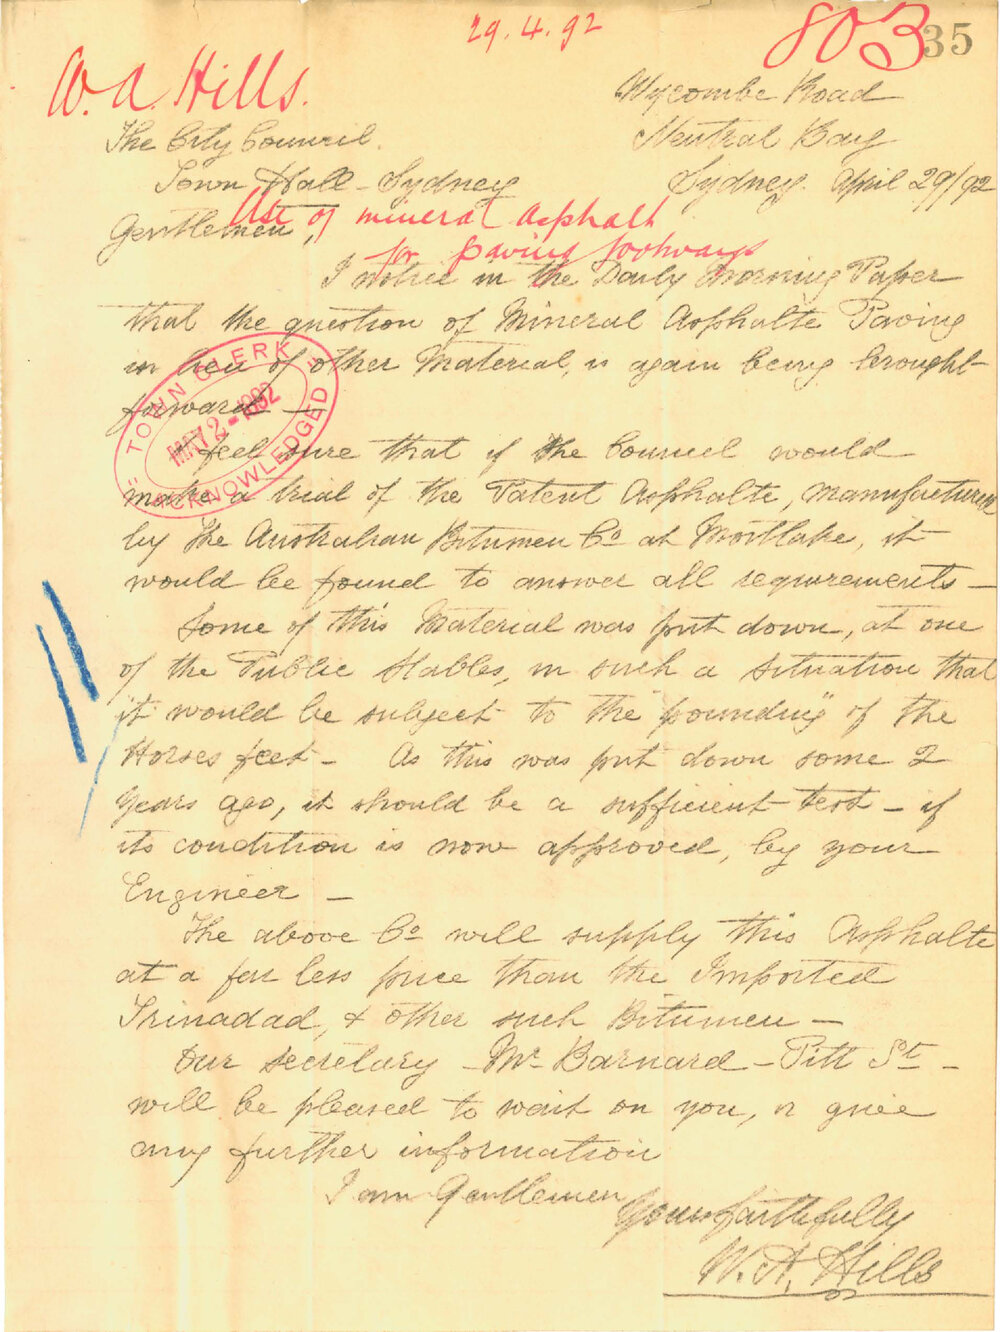 29.4.92
803
35
W. A. Hills.
Wycombe Road
Neutral Bay
Sydney. April 29/92
The City Council.
Town Hall - Sydney
Gentlemen,
Use of mineral Asphalt
for paving footways
I notice in the Daily Morning Paper
that the question of Mineral Asphalte Paving
in lieu of other Material, is again being brought
forward -
I feel sure that if the Council would
make a trial of the Patent Asphalte, manufactured
by The Australian Bitumen Co at Mortlake, it
would be found to answer all requirements -
Some of this Material was put down, at one
of the Public Stables, in such a situation that
it would be subject to the "pounding" of the
Horses feet - As this was put down some 2
Years ago, it should be a sufficient test - if
its condition is now approved, by your
Engineer -
The above Co will supply this Asphalte
at a far less price than the Imported
Trinadad, & other such Bitumen -
Our Secretary - Mr Barnard - Pitt St -
will be pleased to wait on you, or give
any further information
I am Gentlemen
Yours faithfully
W. A. Hills
"TOWN CLERK"
MAY 2 - 1892
ACKNOWLEDGED